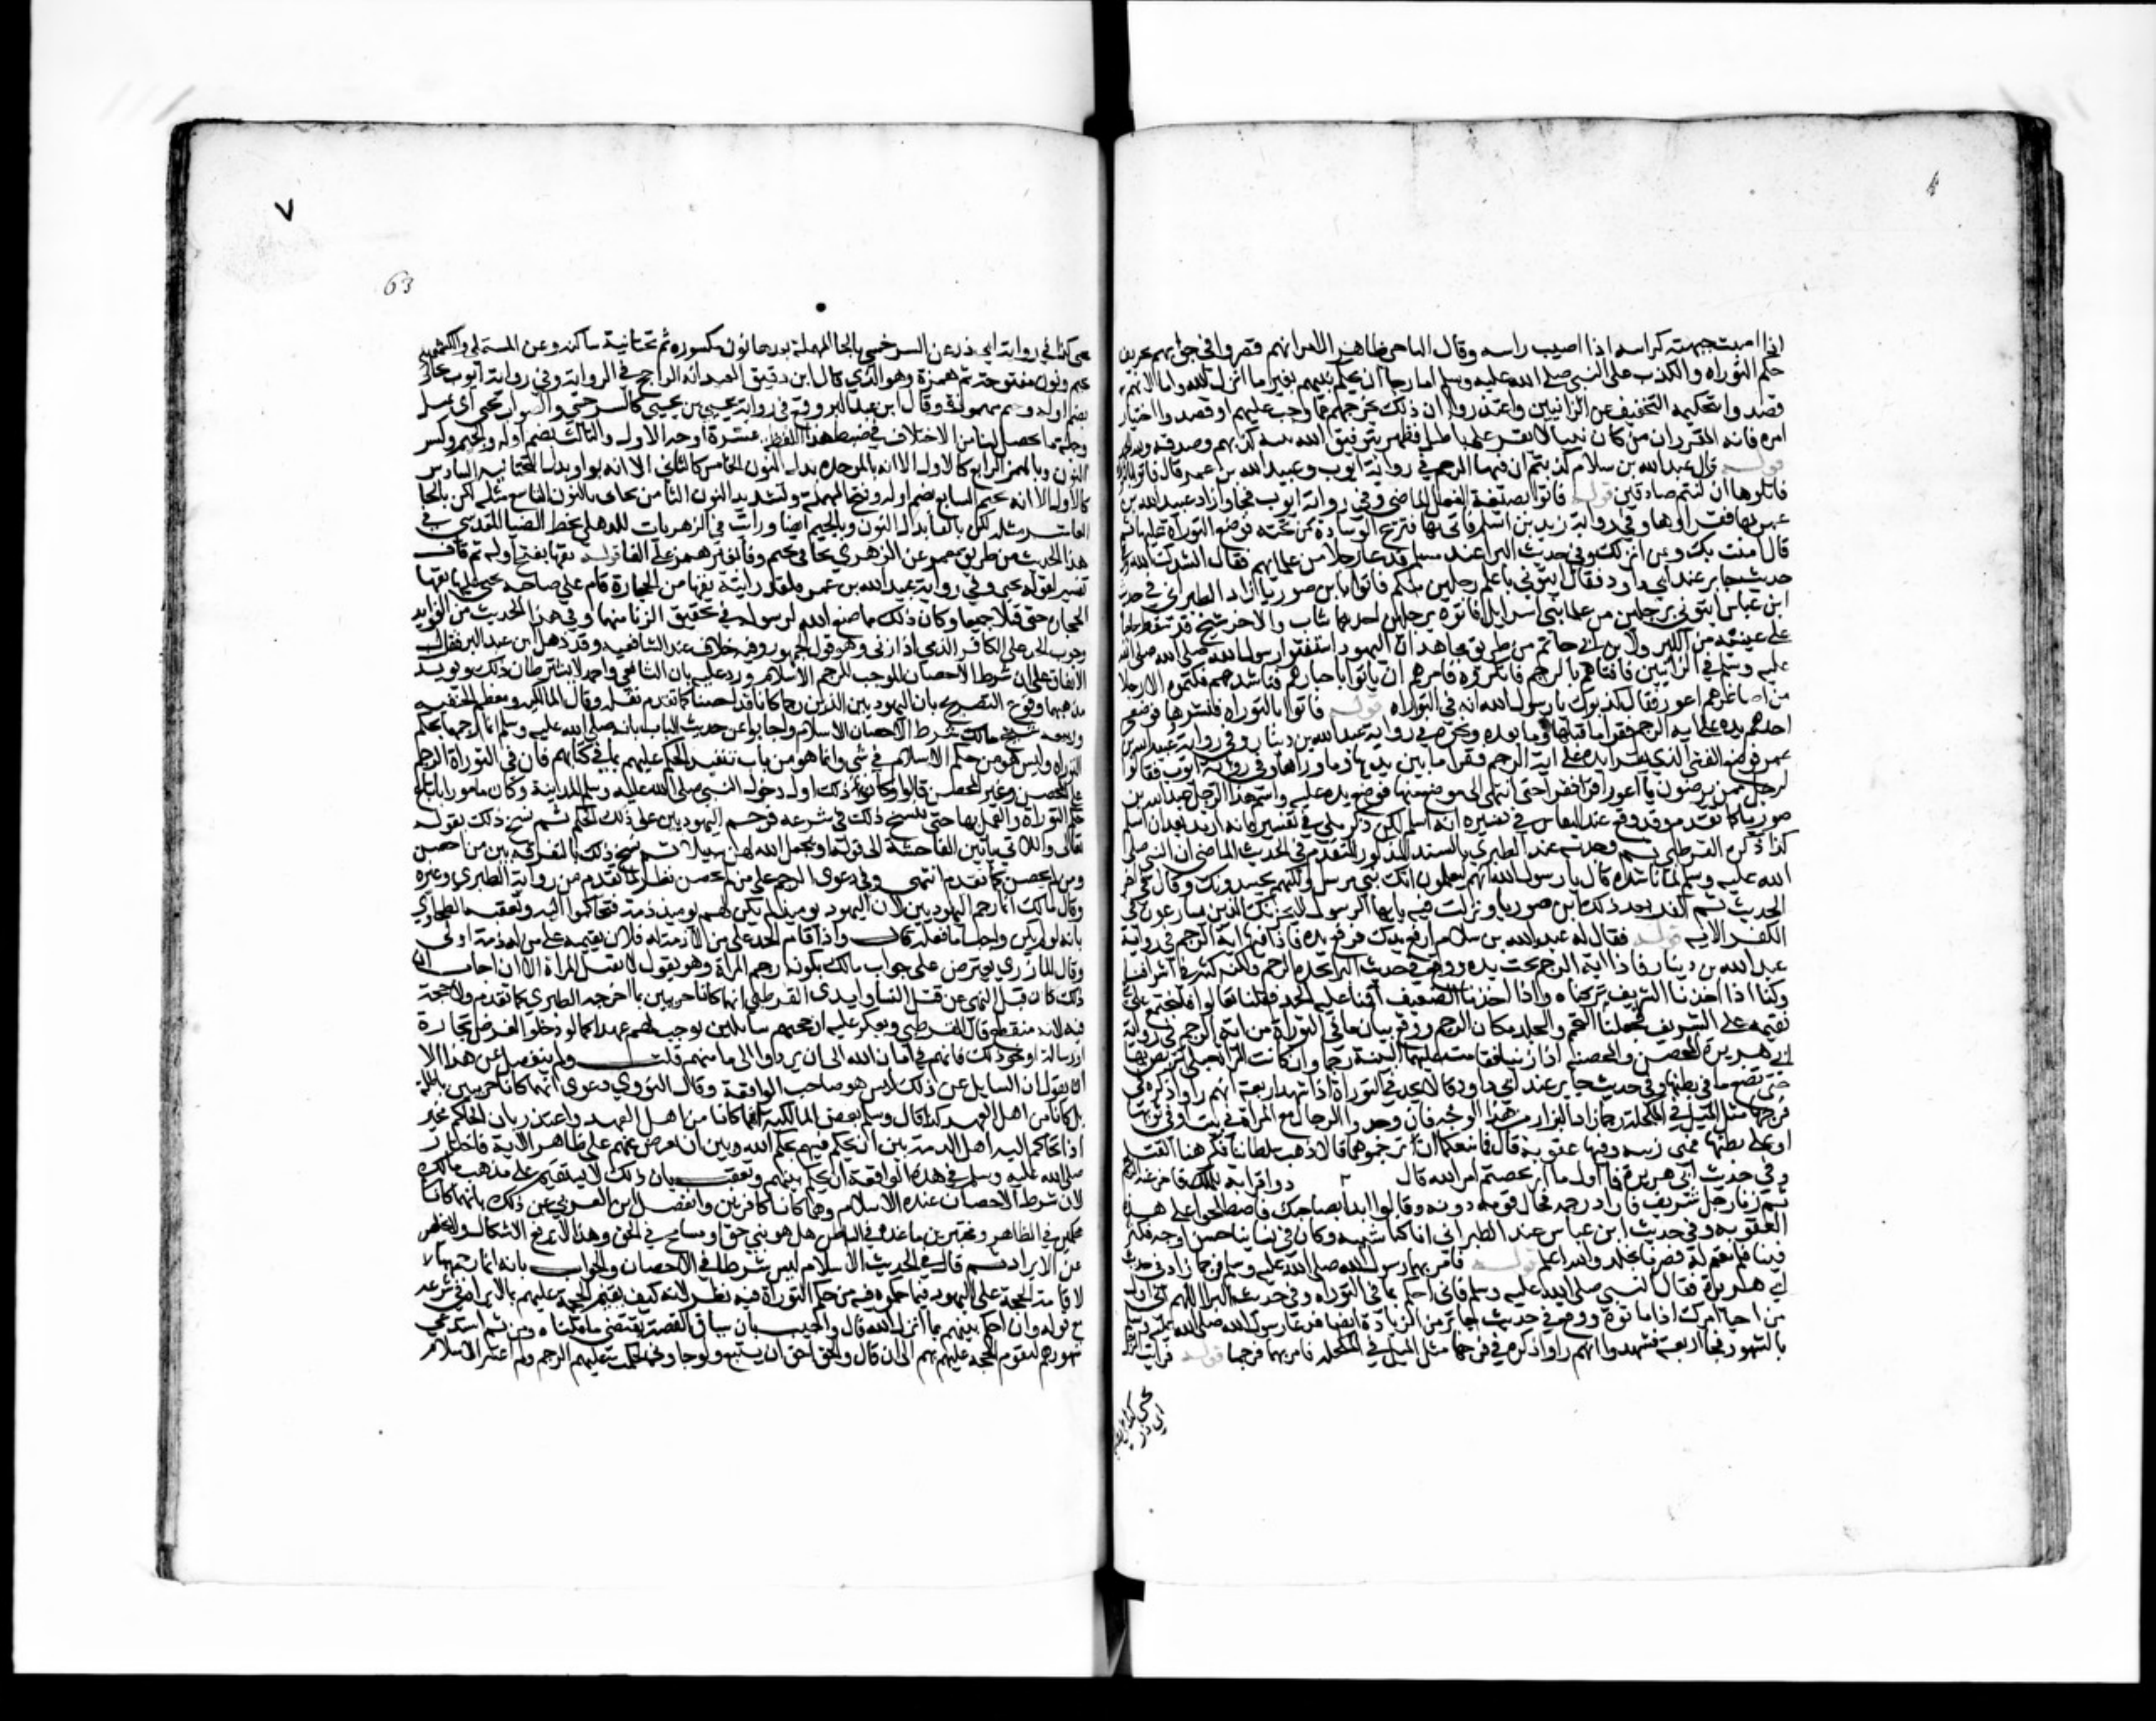 اذا اصبت جبهته كراسه اذا اصيب راسه وقال الباجي ظاهر الامر انهم قصروا في جوابهم تحريف
حكم التوراه والكذب على النبي صلى الله عليه وسلم اما رجا ان يحكم بينهم بغير ما انزل الله واما لانهم
قصدوا بتحكيمه التخفيف عن الزانيين واعتقدوا ان ذلك يخرجهم عما وجب عليهم او قصدوا اختبار
امره فانه المقرر ان من كان نبيا لا يقر على باطل فظهر بتوفيق الله نبيه كذبهم وصدقه ولله الحمد
قوله قال عبد الله بن سلام كذبتم ان فيها الرجم في رواية ايوب وعبيد الله بن عمر قال فاتوا بالتوراة
فاتلوها ان كنتم صادقين قوله فاتوا بصيغة الفعل الماضي وفي رواية ايوب فجاوا زاد عبيد الله بن
عمر بها فقراوها وفي رواية زيد بن اسلم فاتى بها فنزع الوسادة من تحته فوضع التوراة عليها ثم
قال امنت بك وبمن انزلك وفي حديث البرا عند مسلم فدعا رجلا من علمايهم فقال انشدك الله
حديث جابر عند ابي داود فقال ايتوني باعلم رجلين منكم فاتوا بابن صوريا زاد الطبراني في حديث
ابن عباس ايتوني برجلين من علما بني اسرايل فاتوه برجلين احدهما شاب والاخر شيخ قد سقط حاجباه
على عينيه من الكبر ولابن ابي حاتم من طريق مجاهد ان اليهود استفتوا رسول الله صلى الله
عليه وسلم في الزانيين فافتاهم بالرجم فانكروه فامرهم ان ياتوا باحبارهم فناشدهم فكتموه الا رجلا
من اصاغرهم اعور فقال كذبوك يا رسول الله انه في التوراه قوله فاتوا بالتوراه فنشروها فوضع
احدهم يده على اية الرجم فقرا ما قبلها وما بعدها ونحوه في رواية عبد الله بن دينار وفي رواية عبيد الله بن
عمر فوضع الفتى الذي يقرا يده على اية الرجم فقرا ما بين يديها وما وراها وفي رواية ايوب فقالوا
لرجل ممن يرضون يا اعور اقرا فقرا حتى انتهى الى موضع منها فوضع يده عليه واسم هذا الرجل عبد الله بن
صوريا كما تقدم وقد وقع عند النقاش في تفسيره انه اسلم لكن ذكر مكي في تفسيره انه ارتد بعد ان اسلم
كذا ذكره القرطبي ثم وجدته عند الطبري بالسند المذكور المتقدم في الحديث الماضي ان النبي صلى
الله عليه وسلم لما ناشده قال يا رسول الله انهم ليعلمون انك نبي مرسل ولكنهم يحسدونك وقال في اخر
الحديث ثم كفر بعد ذلك ابن صوريا ونزلت فيه يا ايها الرسول لا يحزنك الذين يسارعون في
الكفر الايه قوله فقال له عبد الله بن سلام ارفع يدك فرفع يده فاذا فيها اية الرجم في رواية
عبد الله بن دينار فاذا اية الرجم تحت يده ووقع في حديث البرا نجده الرجم ولكنه كثر في اشرافنا
وكنا اذا اخذنا الشريف تركناه واذا اخذنا الضعيف اقمنا عليه الحد فقلنا تعالوا فلنجتمع على شي
نقيمه على الشريف فجعلنا التحميم والجلد مكان الرجم ووقع بيان ما في التوراة من اية الرجم في رواية
ابي هريرة المحصن والمحصنة اذا زنيا فقامت عليهما البينة رجما وان كانت المراة حبلى تربص بها
حتى تضع ما في بطنها وفي حديث جابر عند ابي داود قالا نجد في التوراة اذا شهد اربعة انهم راوا ذكره في
فرجها مثل الميل في المكحلة رجما زاد البزار من هذا الوجه فان وجدوا الرجل مع المراة في بيت او في ثوبها
او على بطنها فهي ريبة وفيها عقوبة قال فما منعكما ان ترجموهما قالا ذهب سلطاننا فكرهنا القتل
وفي حديث ابي هريرة فما اول ما ارتخصتم امر الله قال زنى ذو قرابة من الملك
ثم زنا رجل شريف فارادوا رجمه فحال قومه دونه وقالوا ابدا بصاحبك فاصطلحوا على هذه
العقوبه وفي حديث ابن عباس عند الطبراني انا كنا شببة وكان في نساينا حسن وجه فكثر
فينا فلم يقم له فصرنا نجلد والله اعلم قوله فامر بهما رسول الله صلى الله عليه وسلم فرجما زاد في حديث
ابي هريرة فقال النبي صلى الله عليه وسلم فاني احكم بما في التوراه وفي حديث البرا اللهم اني اول
من احيا امرك اذ اماتوه ووقع في حديث جابر من الزيادة ايضا فدعا رسول الله صلى الله عليه وسلم
بالشهود فجا اربعة فشهدوا انهم راوا ذكره في فرجها مثل الميل في المكحله فامر بهما فرجما قوله فرايت الرجل
يحني كذا في رواية
ابي ذر
4
٧
63
يحني كذا في رواية ابي ذر عن السرخسي بالحا المهملة بعدها نون مكسورة ثم تحتانية ساكنه وعن المستملي والكشميهني
بجيم ونون مفتوحة ثم همزة وهو الذي قال ابن دقيق العيد انه الراجح في الرواية وفي رواية ايوب يجاني
بضم اوله وجيم مهموز وقال ابن عبد البر وقع في رواية يحيى بن يحيى كالسرخسي والصواب يحني اي يميل
وجملة ما يحصل لنا من الاختلاف في ضبط هذه اللفظة عشرة اوجه الاول والثالث بضم اوله والجيم وكسر
النون وبالهمز الرابع كالاول الا انه بالموحده بدل النون الخامس كالثاني الا انه بواو بدل التحتانية السادس
كالاول الا انه بجيم السابع بضم اوله وفتح المهملة وتشديد النون الثامن يحاني بالنون التاسع مثله لكن بالحا
العاشر مثله لكن بالفا بدل النون وبالجيم ايضا ورايت في الزهريات للذهلي بخط الضيا المقدسي في
هذا الحديث من طريق معمر عن الزهري يجافي بجيم وفا بغير همز على الفا قوله يقيها بفتح اوله ثم قاف
تفسير لقوله يحني وفي رواية عبيد الله بن عمر فلقد رايته يقيها من الحجارة قام على صاحبته يحني عليها يقيها
الحجارة حتى قتلا جميعا وكان ذلك مما صنع الله لرسوله في تحقيق الزنا منهما وفي هذا الحديث من الفوايد
وجوب الحد على الكافر الذمي اذا زنى وهو قول الجمهور وفيه خلاف عند الشافعيه وقد ذهل ابن عبد البر فنقل
الاتفاق على ان شرط الاحصان الموجب للرجم الاسلام ورد عليه بان الشافعي واحمد لا يشترطان ذلك ويويد
مذهبهما وقوع التصريح بان اليهوديين الذين رجما كانا قد احصنا كما تقدم نقله وقال المالكيه ومعظم الحنفيه
وربيعه شيخ مالك شرط الاحصان الاسلام واجابوا عن حديث الباب بانه صلى الله عليه وسلم انما رجمهما بحكم
التوراه وليس هو من حكم الاسلام في شي وانما هو من باب تنفيذ الحكم عليهم بما في كتابهم فان في التوراة الرجم
على المحصن وغير المحصن قالوا وكان ذلك اول دخول النبي صلى الله عليه وسلم المدينة وكان مامورا باتباع
حكم التوراة والعمل بها حتى ينسخ ذلك في شرعه فرجم اليهوديين على ذلك الحكم ثم نسخ ذلك بقوله
تعالى واللاتي ياتين الفاحشة الى قوله او يجعل الله لهن سبيلا ثم نسخ ذلك بالتفرقه بين من احصن
ومن لم يحصن كما تقدم انتهى وفي دعوى الرجم على من لم يحصن نظر لما تقدم من رواية الطبري وغيره
وقال مالك انما رجم اليهوديين لان اليهود يوميذ لم يكن لهم ذمة فتحاكموا اليه وتعقبه الطحاوي
بانه لو لم يكن واجبا ما فعله قال واذا اقام الحد على من لا ذمة له فلان يقيمه على من له ذمة اولى
وقال المازري يعترض على جواب مالك بكونه رجم المراة وهو يقول لا تقتل المراة الا ان اجاب ان
ذلك كان قبل النهي عن قتل النسا وايد القرطبي انهما كانا حربيين بما اخرجه الطبري كما تقدم ولا حجة
فيه لانه منقطع قال القرطبي ويعكر عليه ان مجيهم سايلين يوجب لهم عهدا كما لو دخلوا لغرض كتجارة
او رسالة او نحو ذلك فانهم في امان الله الى ان يردوا الى مامنهم قلت ولم ينفصل عن هذا الا
ان يقول ان السايل عن ذلك ليس هو صاحب الواقعة وقال النووي دعوى انهما كانا حربيين باطلة
بل كانا من اهل العهد كذا قال وسلم بعض المالكية انهما كانا من اهل العهد واعتذر بان الحاكم مخير
اذا تحاكم اليه اهل الذمة بين ان يحكم فيهم بحكم الله وبين ان يعرض عنهم على ظاهر الاية فاختار
صلى الله عليه وسلم في هذه الواقعة ان يحكم بينهم وتعقب بان ذلك لا يستقيم على مذهب مالك
لان شرط الاحصان عنده الاسلام وهما كانا كافرين وانفصل ابن العربي عن ذلك بانهما كانا
محكمين في الظاهر ومختبرين ما عنده في الباطن هل هو نبي حق او مسامح في الحق وهذا لا يرفع الاشكال ولا يخلص
عن الايراد ثم قال في الحديث الاسلام ليس شرطا في الاحصان والجواب بانه انما رجمهما
لاقامة الحجة على اليهود فيما حكموه فيه من حكم التوراة فيه نظر لانه كيف يقيم الحجة عليهم بما لا يراه في شرعه
مع قوله وان احكم بينهم بما انزل الله قال واجيب بان سياق القصة يقتضي ما قلناه ومن ثم استدعى
شهودهم لتقوم الحجة عليهم بهم الى ان قال والحق احق ان يتبع ولو جاوني لحكمت عليهم بالرجم ولم اعتبر الاسلام